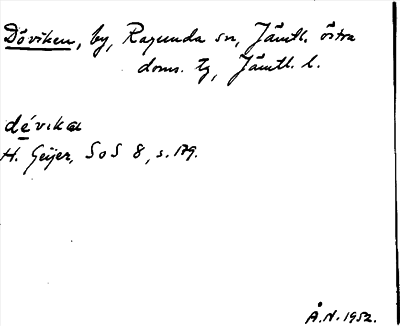 Döviken, by, Ragunda sn, Jämtl. östra
doms. tg, Jämtl. l.
dévikɑ
H. Geijer, SoS 8, s. 179.
Å.N. 1952.